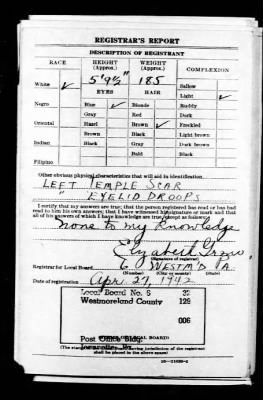 REGISTRAR'S REPORT
DESCRIPTION OF REGISTRANT
RACE HEIGHT (Approx.) WEIGHT (Approx.) COMPLEXION
5' 9½" 185
White ✓ Sallow
EYES HAIR Light ✓
Negro Blue ✓ Blonde Ruddy
Gray Red Dark
Oriental Hazel Brown ✓ Freckled
Brown Black Light brown
Indian Black Gray Dark brown
Bald Black
Filipino
Other obvious physical characteristics that will aid in identification
LEFT TEMPLE SCAR
" EYELID DROOPS
I certify that my answers are true; that the person registered has read or has had
read to him his own answers; that I have witnessed his signature or mark and that
all of his answers of which I have knowledge are true, except as follows:
None to my Knowledge
Elizabeth
(Signature of registrar)
Registrar for Local Board 6 WESTM'D PA.
(Number) (City or county) (State)
Date of registration Apr. 27, 1942
Local Board No. 6
Westmoreland County 129
006
Post Office Bldg.
(STAMP OF LOCAL BOARD)
shall be placed in the above space)